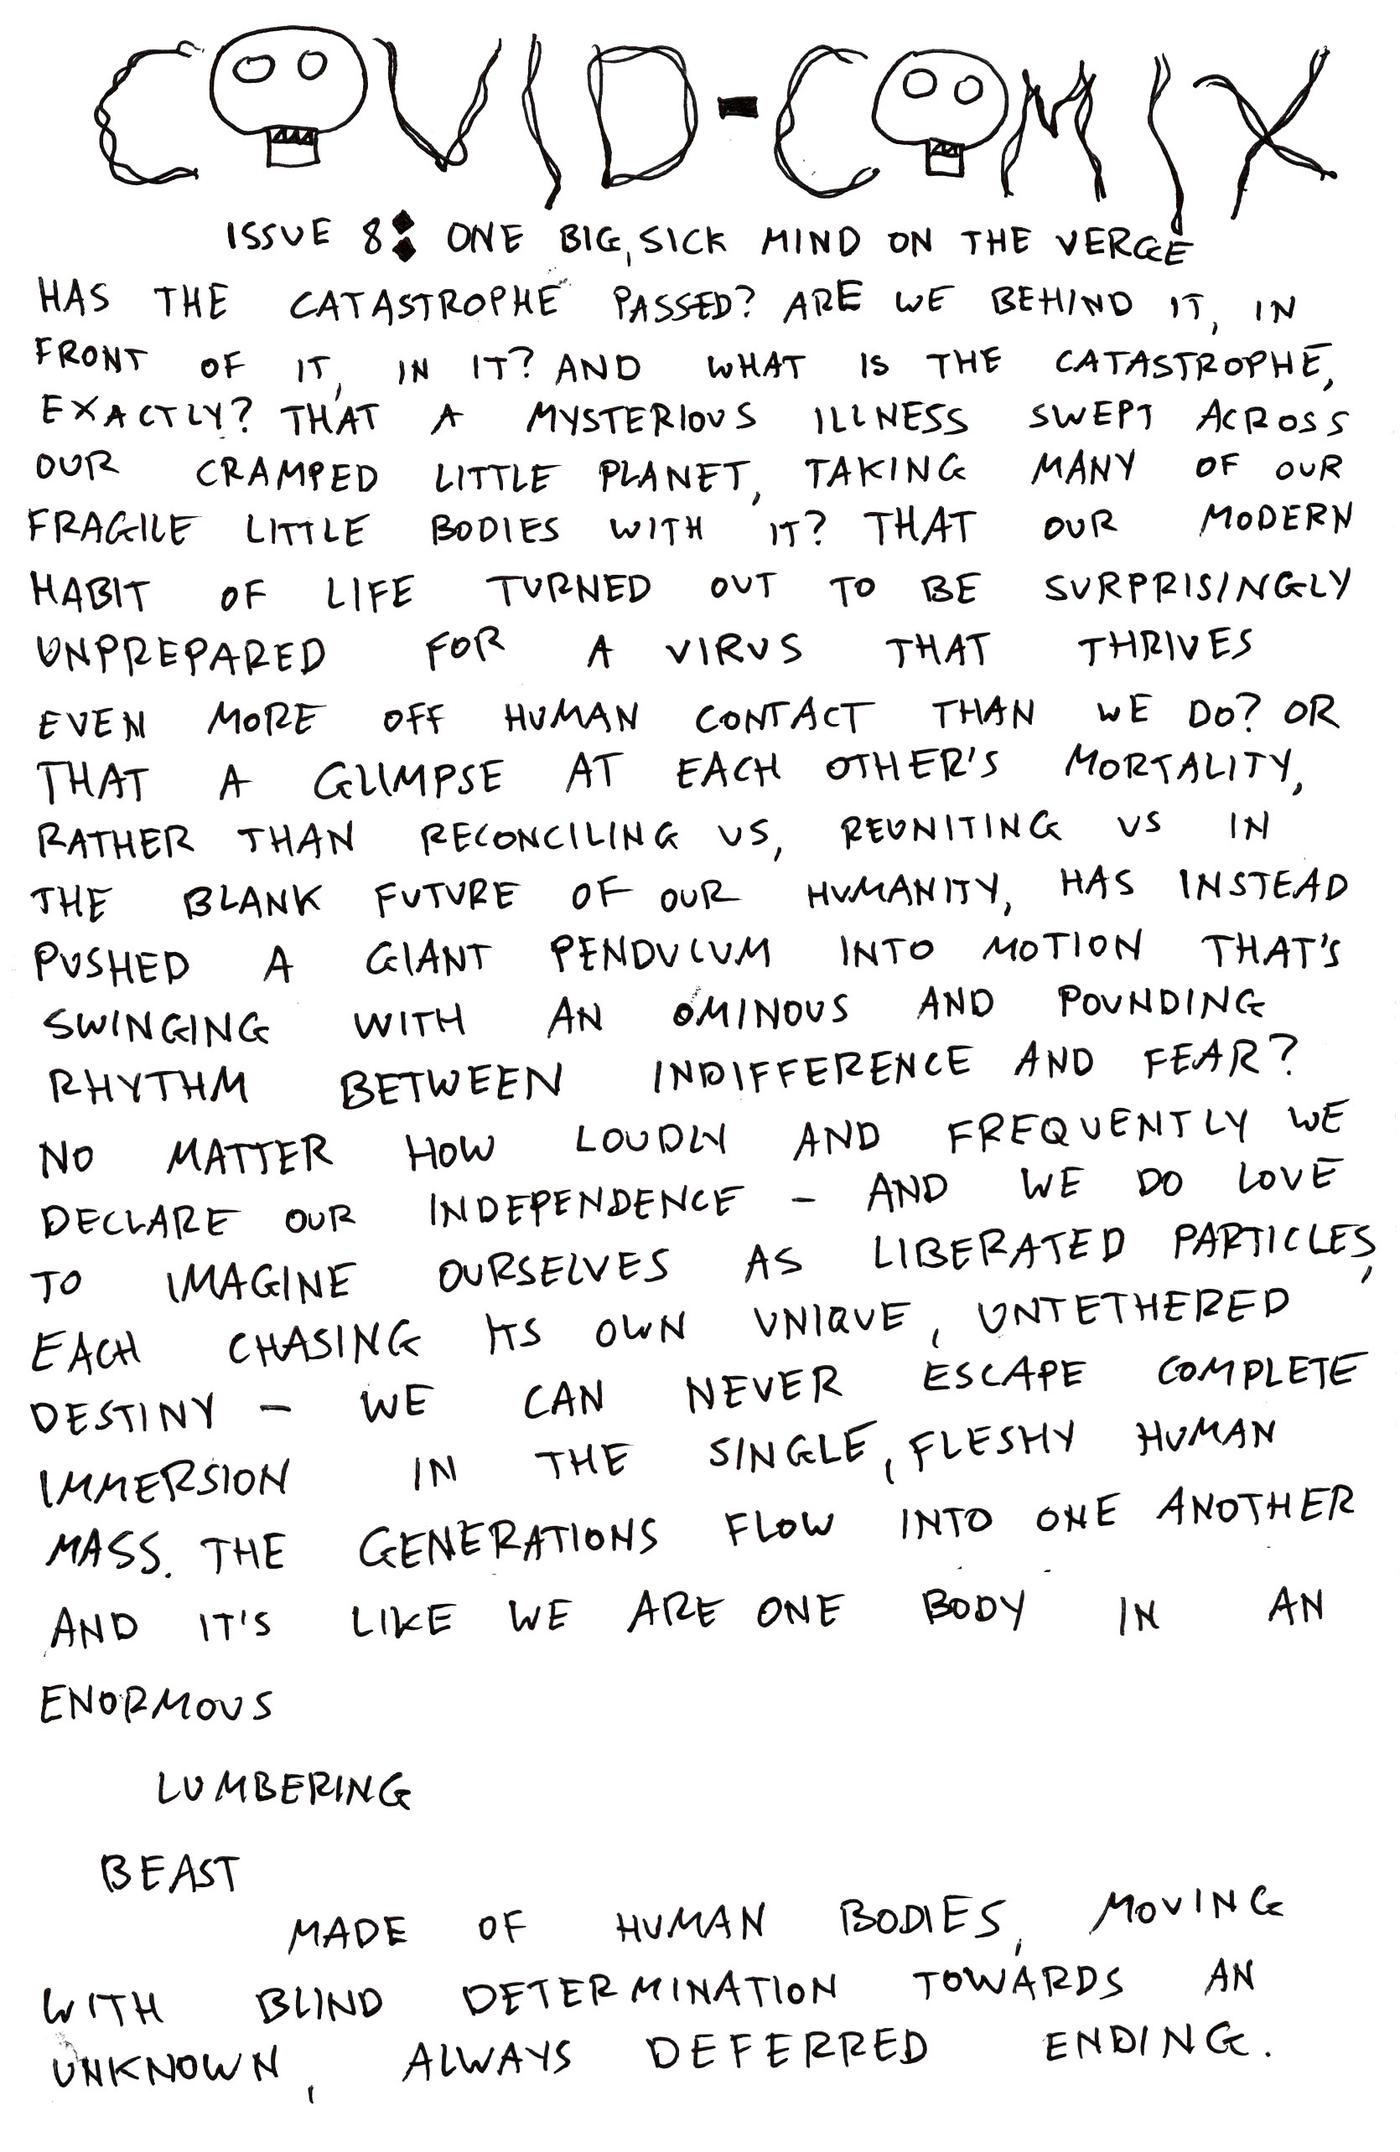 COVID-COMIX
ISSUE 8: ONE BIG, SICK MIND ON THE VERGE
HAS THE CATASTROPHE PASSED? ARE WE BEHIND IT, IN
FRONT OF IT, IN IT? AND WHAT IS THE CATASTROPHE,
EXACTLY? THAT A MYSTERIOUS ILLNESS SWEPT ACROSS
OUR CRAMPED LITTLE PLANET, TAKING MANY OF OUR
FRAGILE LITTLE BODIES WITH IT? THAT OUR MODERN
HABIT OF LIFE TURNED OUT TO BE SURPRISINGLY
UNPREPARED FOR A VIRUS THAT THRIVES
EVEN MORE OFF HUMAN CONTACT THAN WE DO? OR
THAT A GLIMPSE AT EACH OTHER'S MORTALITY,
RATHER THAN RECONCILING US, REUNITING US IN
THE BLANK FUTURE OF OUR HUMANITY, HAS INSTEAD
PUSHED A GIANT PENDULUM INTO MOTION THAT'S
SWINGING WITH AN OMINOUS AND POUNDING
RHYTHM BETWEEN INDIFFERENCE AND FEAR?
NO MATTER HOW LOUDLY AND FREQUENTLY WE
DECLARE OUR INDEPENDENCE - AND WE DO LOVE
TO IMAGINE OURSELVES AS LIBERATED PARTICLES,
EACH CHASING ITS OWN UNIQUE, UNTETHERED
DESTINY - WE CAN NEVER ESCAPE COMPLETE
IMMERSION IN THE SINGLE, FLESHY HUMAN
MASS. THE GENERATIONS FLOW INTO ONE ANOTHER
AND IT'S LIKE WE ARE ONE BODY IN AN
ENORMOUS
LUMBERING
BEAST
MADE OF HUMAN BODIES, MOVING
WITH BLIND DETERMINATION TOWARDS AN
UNKNOWN, ALWAYS DEFERRED ENDING.